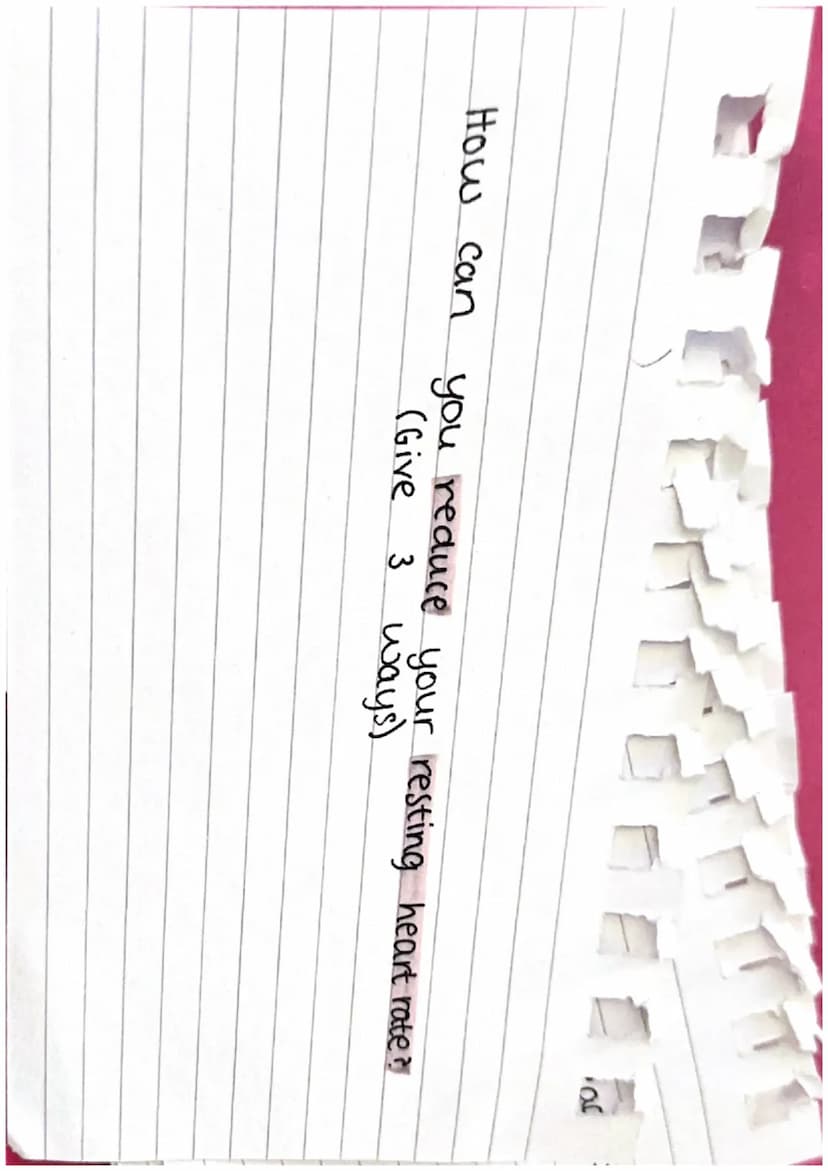 How can you reduce your resting heart rate?
(Give 3 ways)